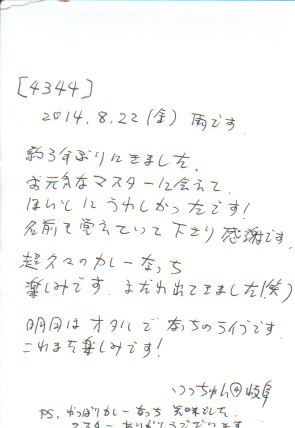 [4344]
2014.8.22(金) 雨です
約3年ぶりにきました。
お元気なマスターに会えて、
ほんとにうれしかったです!
名前も覚えていて下さり 感謝です。
超久々のカレーなっち
楽しみです。まだれ出てきました(笑)
明日は オタルで なっちのライブです。
これまた楽しみです!
つっちゃん④岐阜
PS. やっぱりカレーなっち 美味でした。
マスター ありがとうございます